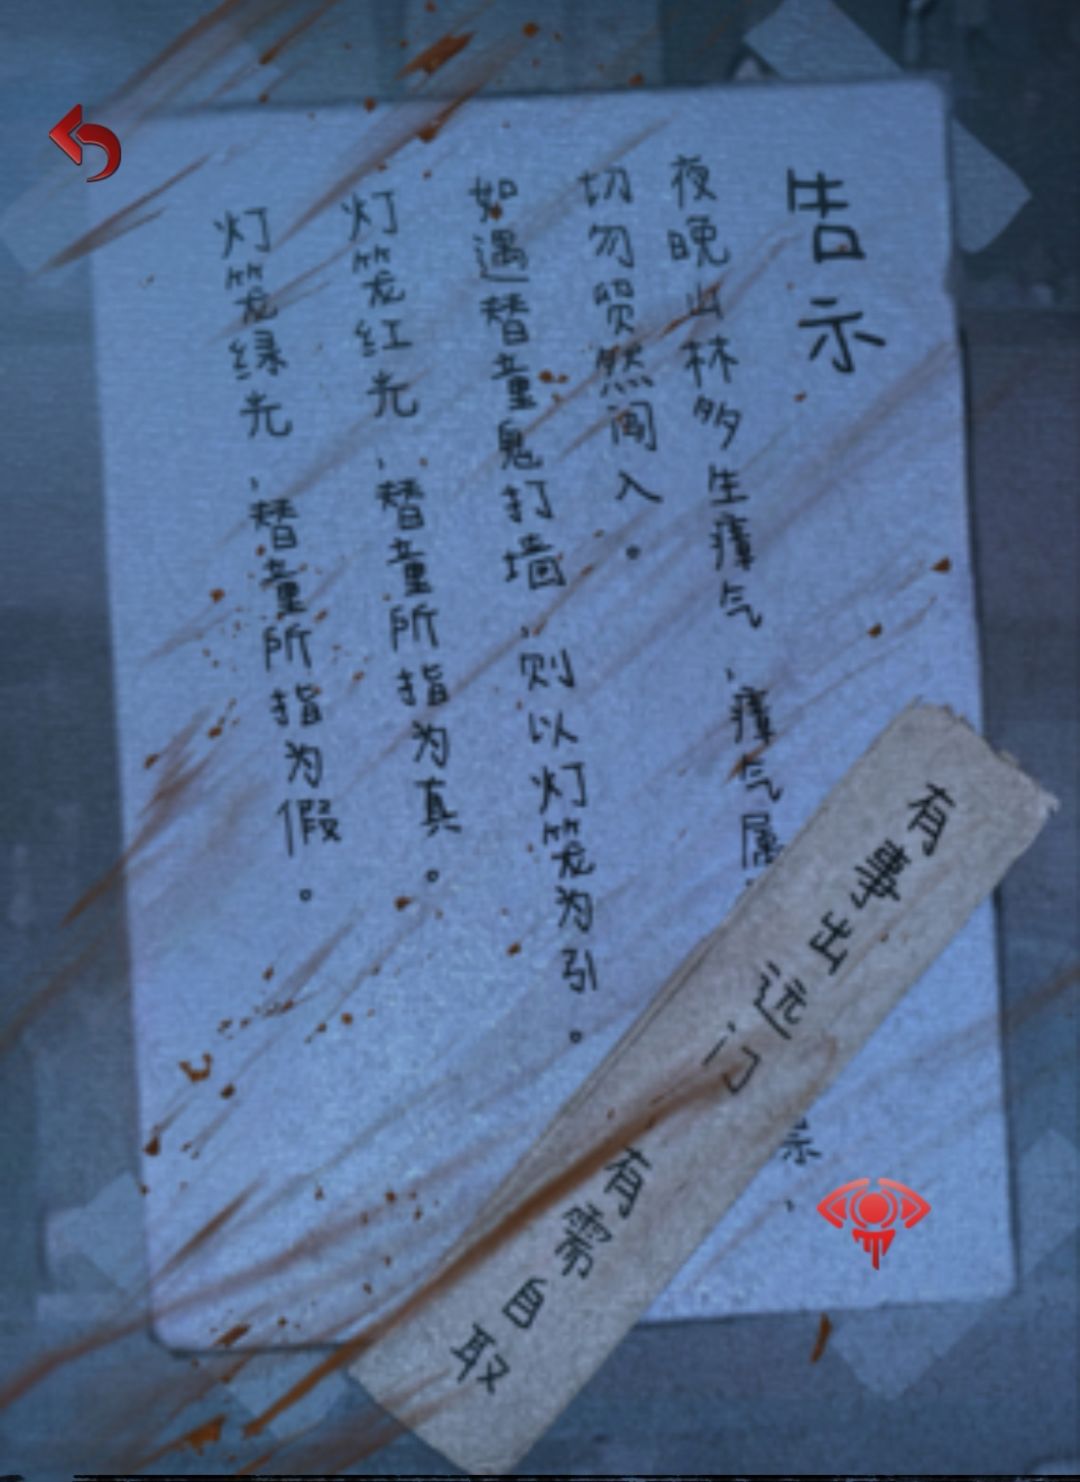 告示
夜晚山林多生瘴气，瘴气属
切勿贸然闯入。
如遇替童鬼打墙，则以灯笼为引。
灯笼红光，替童所指为真。
灯笼绿光，替童所指为假。
有事出远门 有需自取